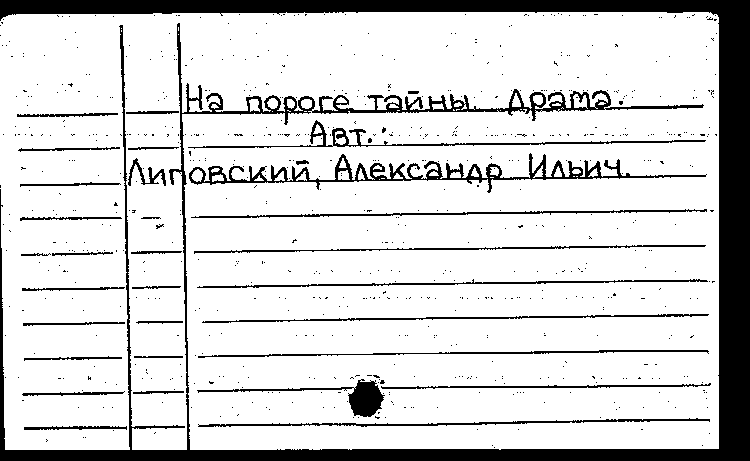 На пороге тайны. Драма.
Авт.:
Липовский, Александр Ильич.